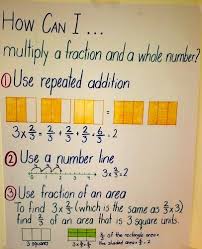 How Can I ...
multiply a fraction and a whole number?
① Use repeated addition
=
3 x 2/3 = 2/3 + 2/3 + 2/3 = 6/3 = 2
② Use a number line
3 x 2/3 = 2
③ Use fraction of an area
To find 3 x 2/3 (which is the same as 2/3 x 3)
find 2/3 of an area that is 3 square units.
2/3 of the rectangle area =
the shaded area =